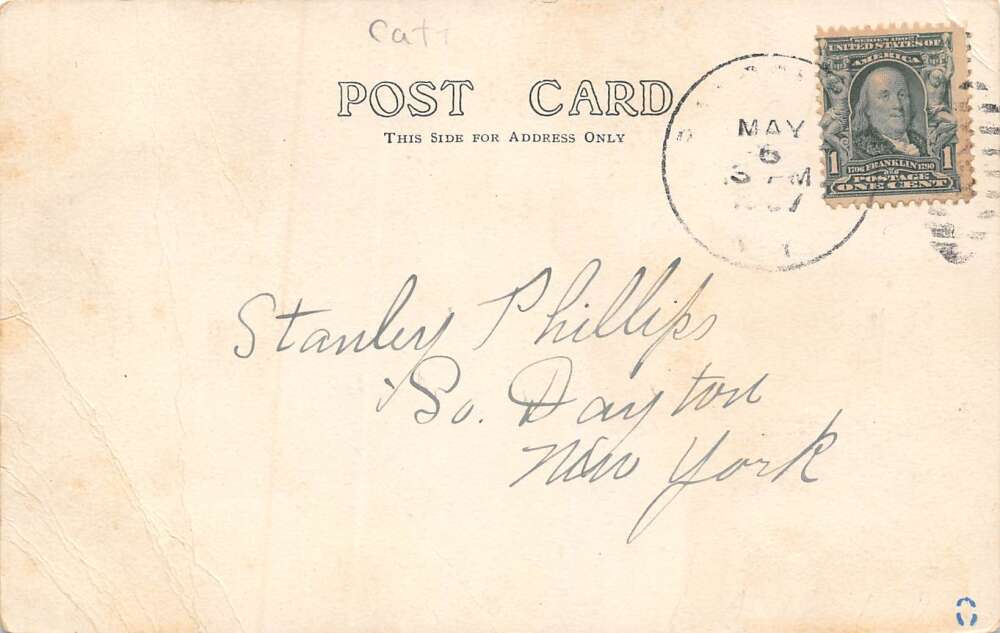 Cat
POST CARD
THIS SIDE FOR ADDRESS ONLY
SERIES 1902
UNITED STATES OF
AMERICA
1706 FRANKLIN 1790
1 POSTAGE 1
ONE CENT
MAY
6
PM
1907
Stanley Phillips
So. Dayton
New York